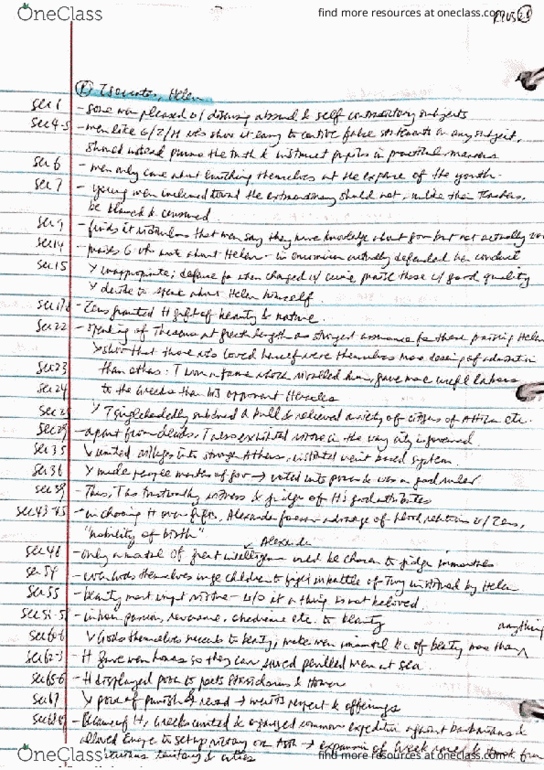 OneClass find more resources at oneclass.com
Isocrates, Helen
sec 1 - some men pleased w/ discussing absurd & self contradictory subjects
sec 4-5 - men like G/Z/M who show it easy to contrive false statements on any subject,
should instead pursue the truth & instruct pupils in practical manners
sec 6 - men only care about enriching themselves at the expense of the youth
sec 7 - young men inclined toward the extraordinary should not, unlike their teachers,
be blamed & censured
sec 9 - finds it ridiculous that men say they have knowledge about gov but not actually
sec 14 - praises G who wrote about Helen - in encomium actually defended her conduct
sec 15 > inappropriate; defense for when charged w/ crime praise those w/ good quality
> decides to speak about Helen himself.
Zeus granted H gift of beauty &
sec 22 - speaking of Theseus at great length as strongest assurance for those praising Helen
> show that those who loved her were themselves more deserving of admiration
sec 23 than others: T won fame which rivalled him, gave more useful labors
sec 24 to the Greeks than his opponent Heracles
sec 25 > T singlehandedly subdued a bull & relieved anxiety of citizens of Attica etc.
apart from deeds, T also exhibited virtue in the way city is governed
sec 35 > united villages into stronger Athens, instituted merit based system
sec 36 > made people masters of gov → voted into power & was a good ruler
Thus, T is trustworthy witness & judge of H's good attributes
sec 43-45 - in choosing H over gifts, Alexander foresaw advantage of blood relations w/ Zeus,
"nobility of birth"
Alexander
sec 46 - only a mortal of great intelligence would be chosen to judge immortals
sec 54 - Gods themselves urge children to fight in battle of Troy instituted by Helen
sec 55 - beauty most imp't virtue - w/o it a thing is not beloved
in love, passion, reverence, obedience etc. to beauty anything
> Gods themselves succumb to beauty; make men immortal b.c. of beauty more than ^
H gave men honors so they can saved perilled men at sea
sec 65-6 - H displayed power to poets Stesichorus & Homer
sec 67 > power of punish & reward → merits respect & offerings
Because of H, Greeks united & organized common expedition against barbarians &
allowed Europe to set up victory over Asia → expansion of Greek
territory & cities
OneClass find more resources at oneclass.com